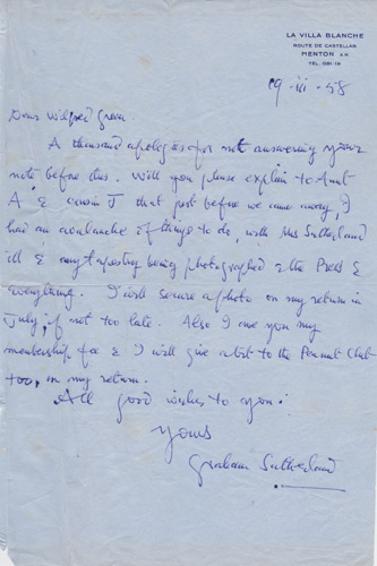 LA VILLA BLANCHE
ROUTE DE CASTELLAR
MENTON A.M.
TEL.
19-iii-58
Dear Wilfred Green
A thousand apologies for not answering your
note before this. Will you please explain to Aunt
A & cousin J that just before we came away, I
had an avalanche of things to do, with Mrs Sutherland
ill & my tapestry being photographed & the Press &
everything. I will secure a photo on my return in
July, if not too late. Also I owe you my
membership fee & I will give a bit to the Club
too, on my return.
All good wishes to you.
Yours
Graham Sutherland